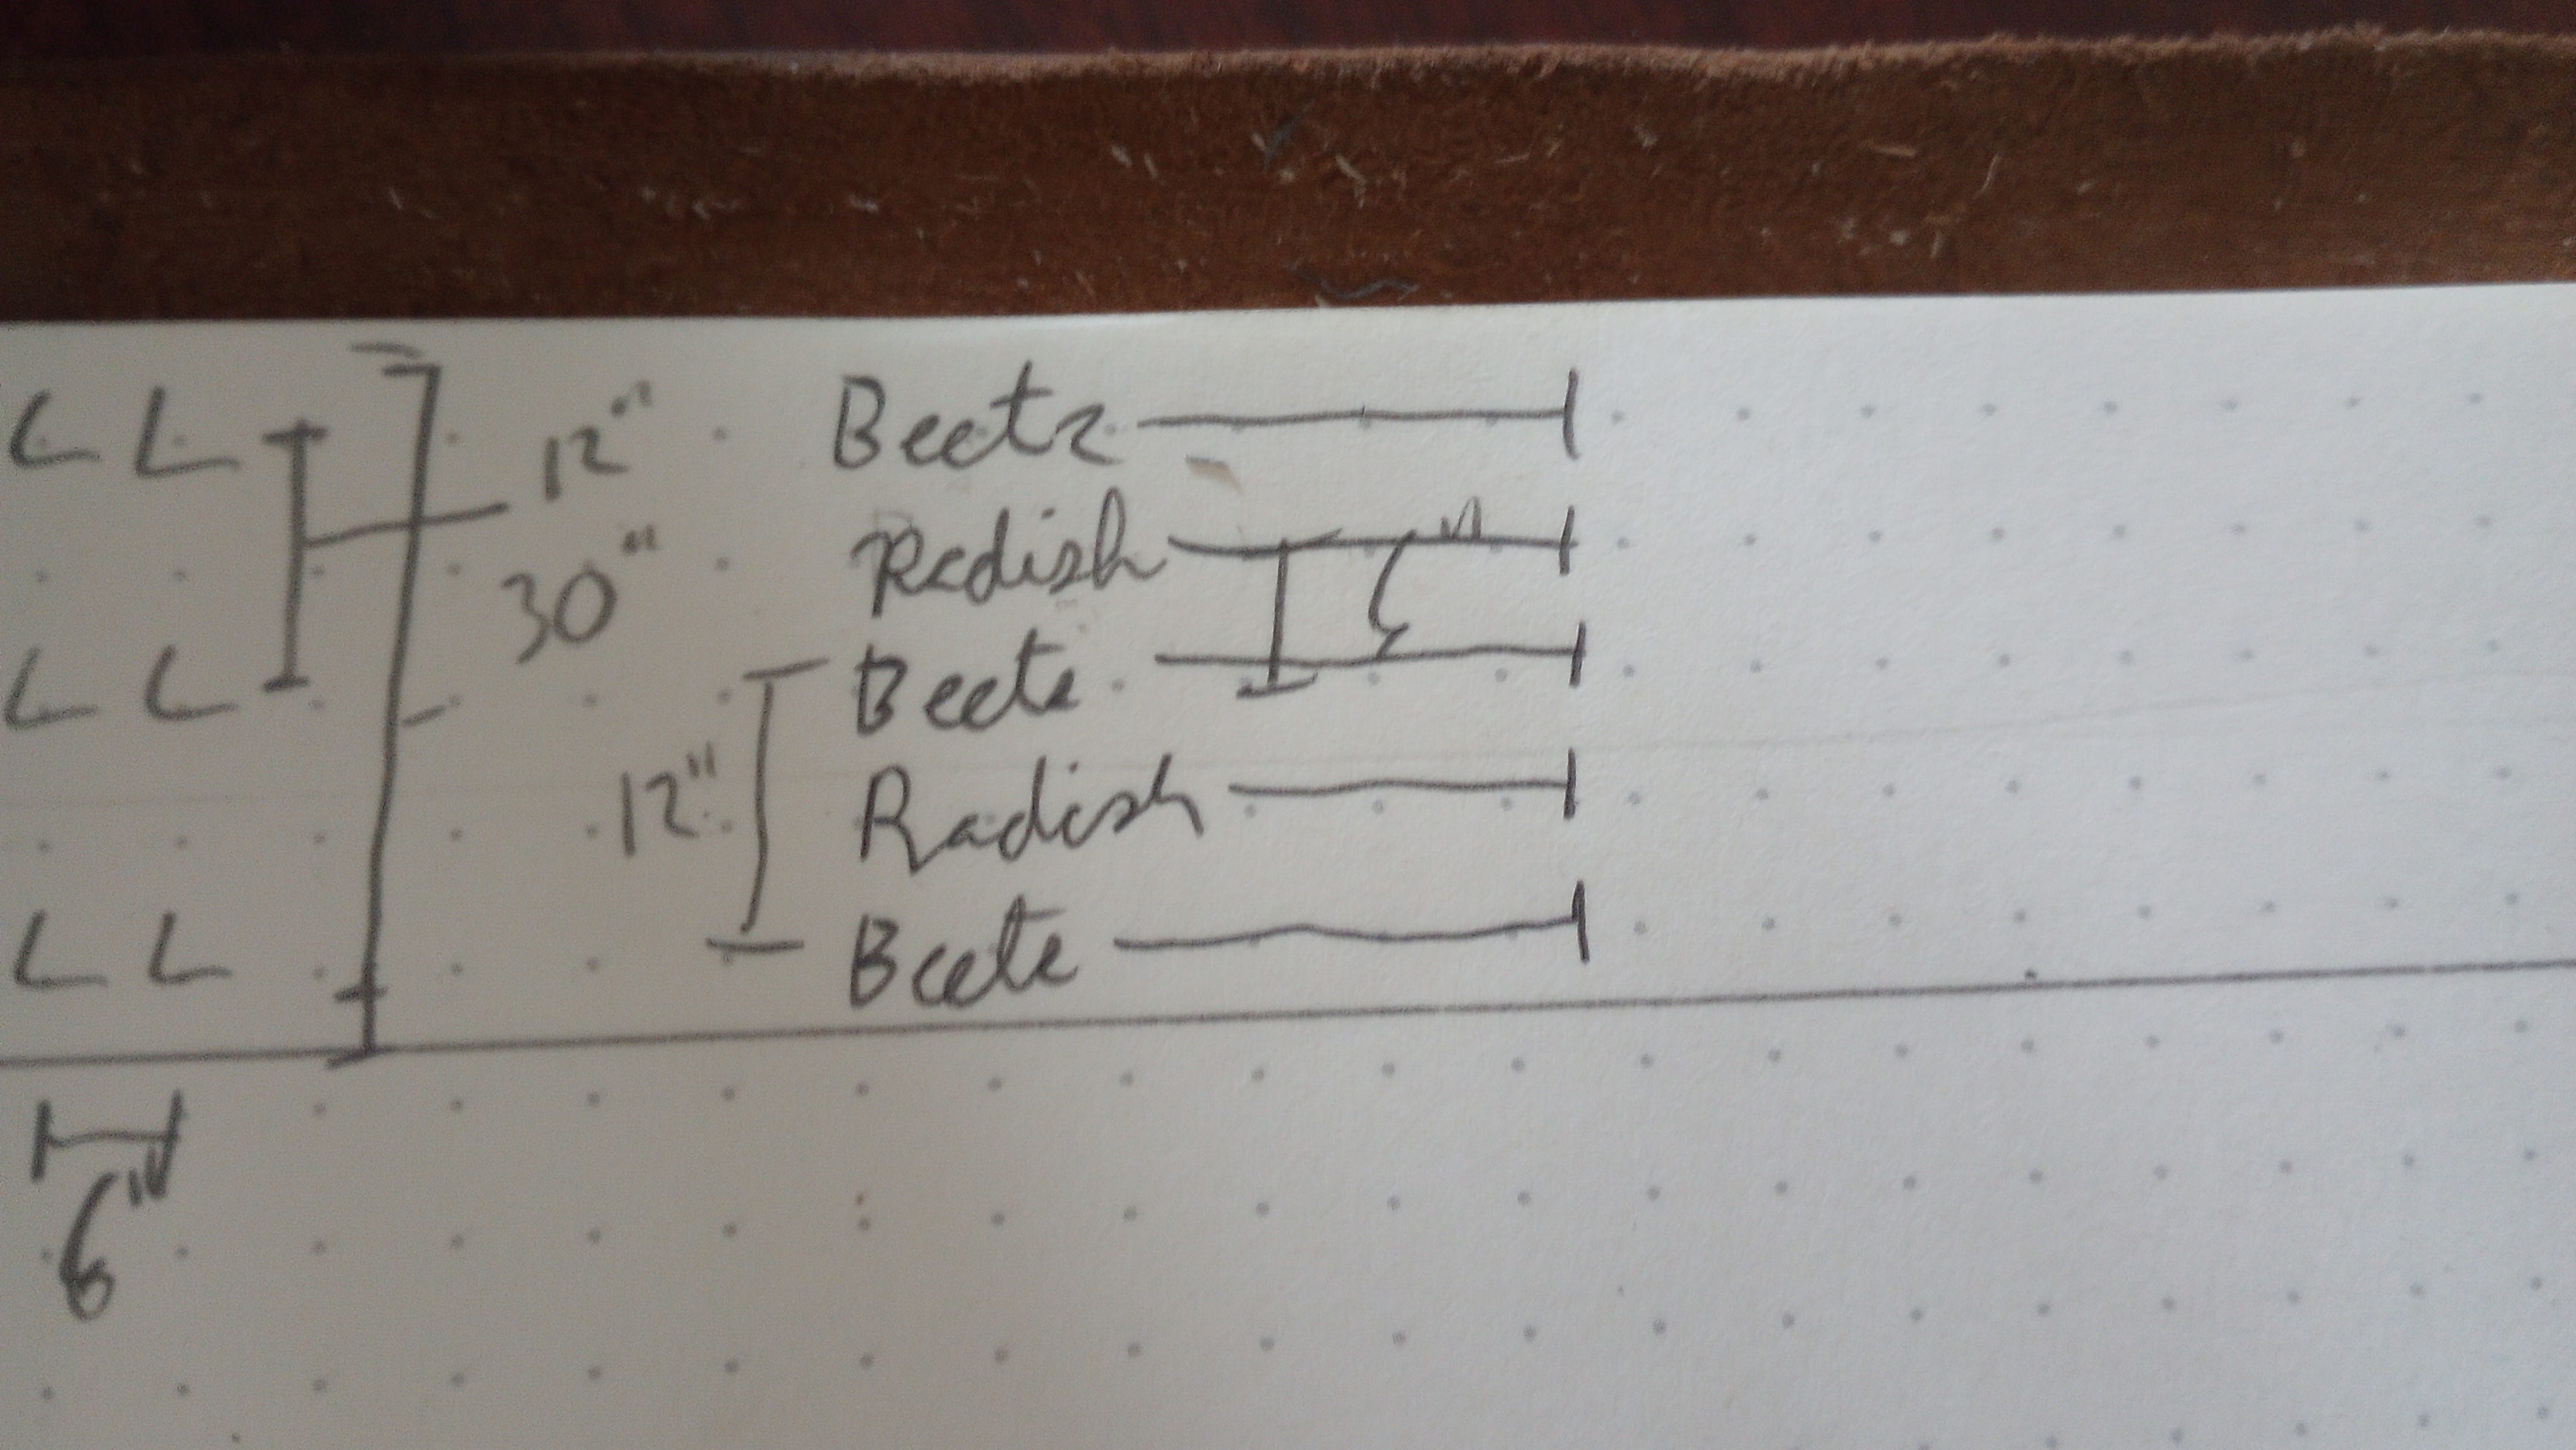 L L 12" Beets
30" Radish 6"
L L Beets
12" Radish
L L Beets
6"